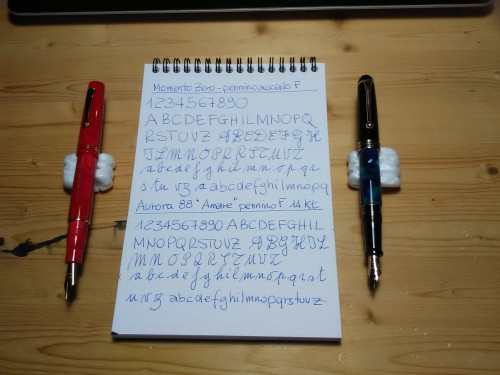 Momento Zero - pennino acciaio F
1234567890
ABCDEFGHILMNOPQ
RSTUVZ ABCDEFGH
ILMNOPQRSTUVZ
abcdefghilmnopqr
stuvz abcdefghilmnopq
Aurora 88 "Amare" pennino F 14 Kt
1234567890 ABCDEFGHIL
MNOPQRSTUVZ ABGHIL
MNOPQRSTUVZ
abcdefghilmnopqrst
uvz abcdefghilmnopqrstuvz